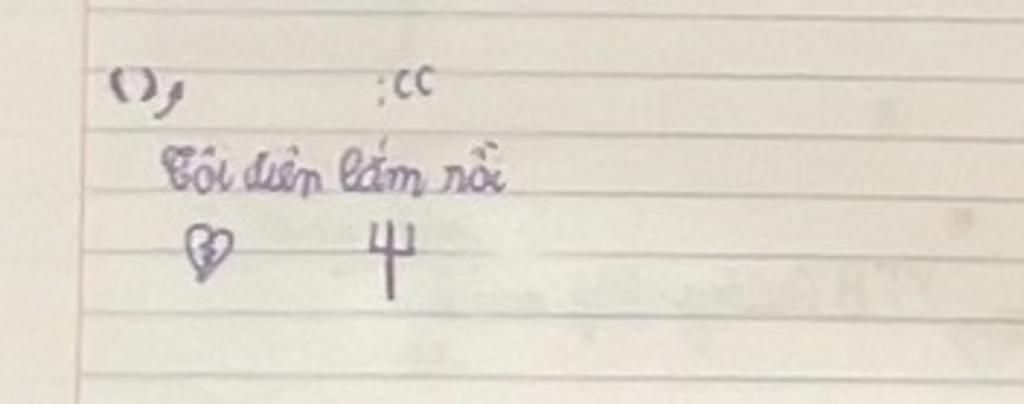 (), :CC
Tôi điên lắm rồi
💔 Ψ